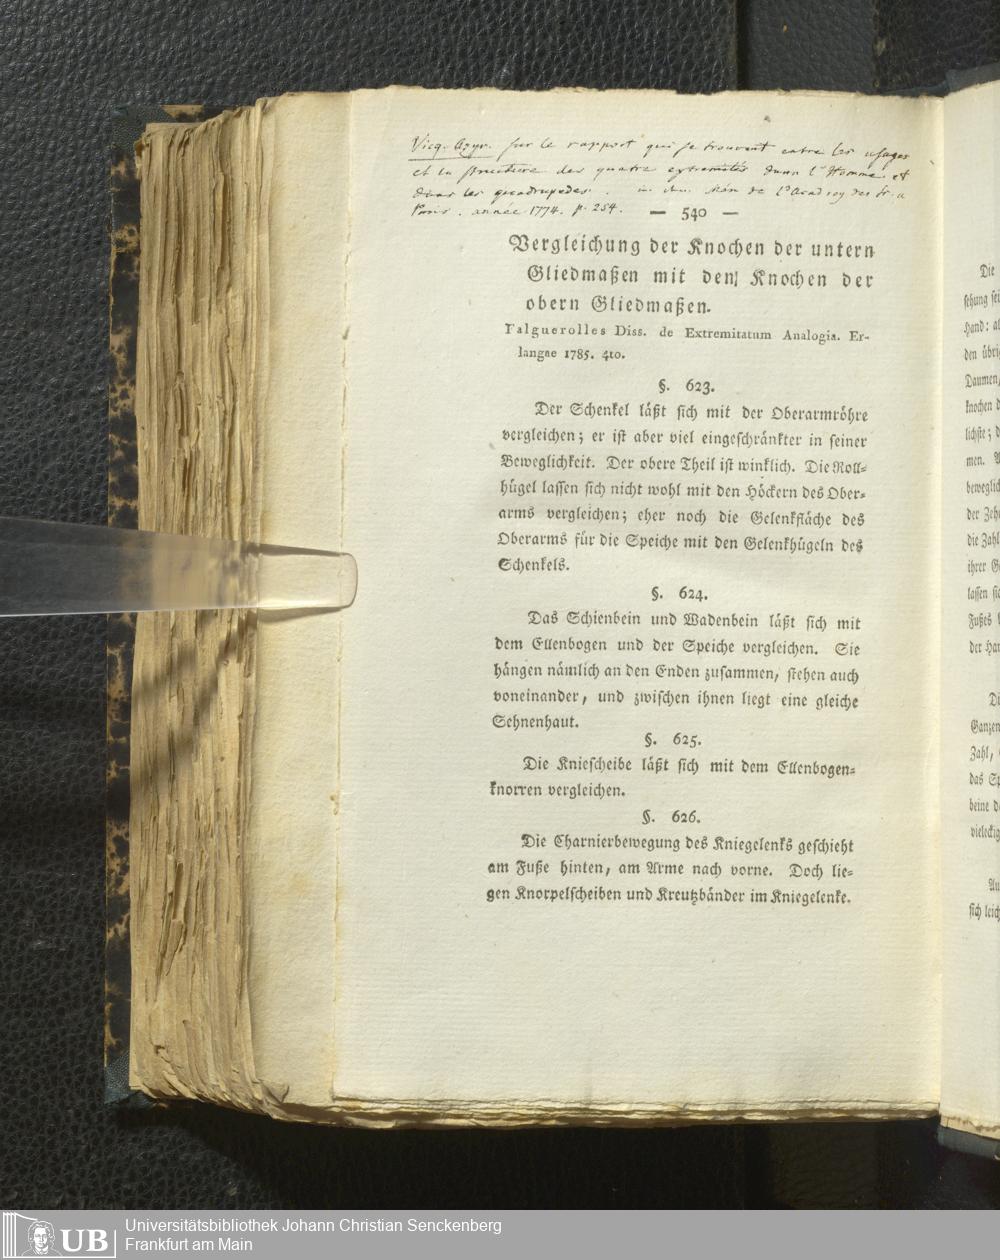 Vicq. Azyr. sur le rapport qui se trouvent entre les usages
et la structure des quatre extremités dans l'Homme et
dans les quadrupedes. in den Mém de l'Acad roy des Sc. a
Paris. année 1774. p. 254.
— 540 —
Vergleichung der Knochen der untern
Gliedmaßen mit den Knochen der
obern Gliedmaßen.
Falguerolles Diss. de Extremitatum Analogia. Er-
langae 1785. 4to.
§. 623.
Der Schenkel läßt sich mit der Oberarmröhre
vergleichen; er ist aber viel eingeschränkter in seiner
Beweglichkeit. Der obere Theil ist winklich. Die Roll-
hügel lassen sich nicht wohl mit den Höckern des Ober-
arms vergleichen; eher noch die Gelenkfläche des
Oberarms für die Speiche mit den Gelenkhügeln des
Schenkels.
§. 624.
Das Schienbein und Wadenbein läßt sich mit
dem Ellenbogen und der Speiche vergleichen. Sie
hängen nämlich an den Enden zusammen, stehen auch
voneinander, und zwischen ihnen liegt eine gleiche
Sehnenhaut.
§. 625.
Die Kniescheibe läßt sich mit dem Ellenbogen-
knorren vergleichen.
§. 626.
Die Charnierbewegung des Kniegelenks geschieht
am Fuße hinten, am Arme nach vorne. Doch lie-
gen Knorpelscheiben und Kreutzbänder im Kniegelenke.
Die
sehung sei
Hand: al
den übri
Daumen,
knochen d
lichste; d
men. A
beweglich
der Zehe
die Zahl
ihrer G
lassen sic
Fußes
der Han
Di
Ganzen
Zahl,
das Sp
beine d
vieleckig
Au
sich leich
UB
Universitätsbibliothek Johann Christian Senckenberg
Frankfurt am Main